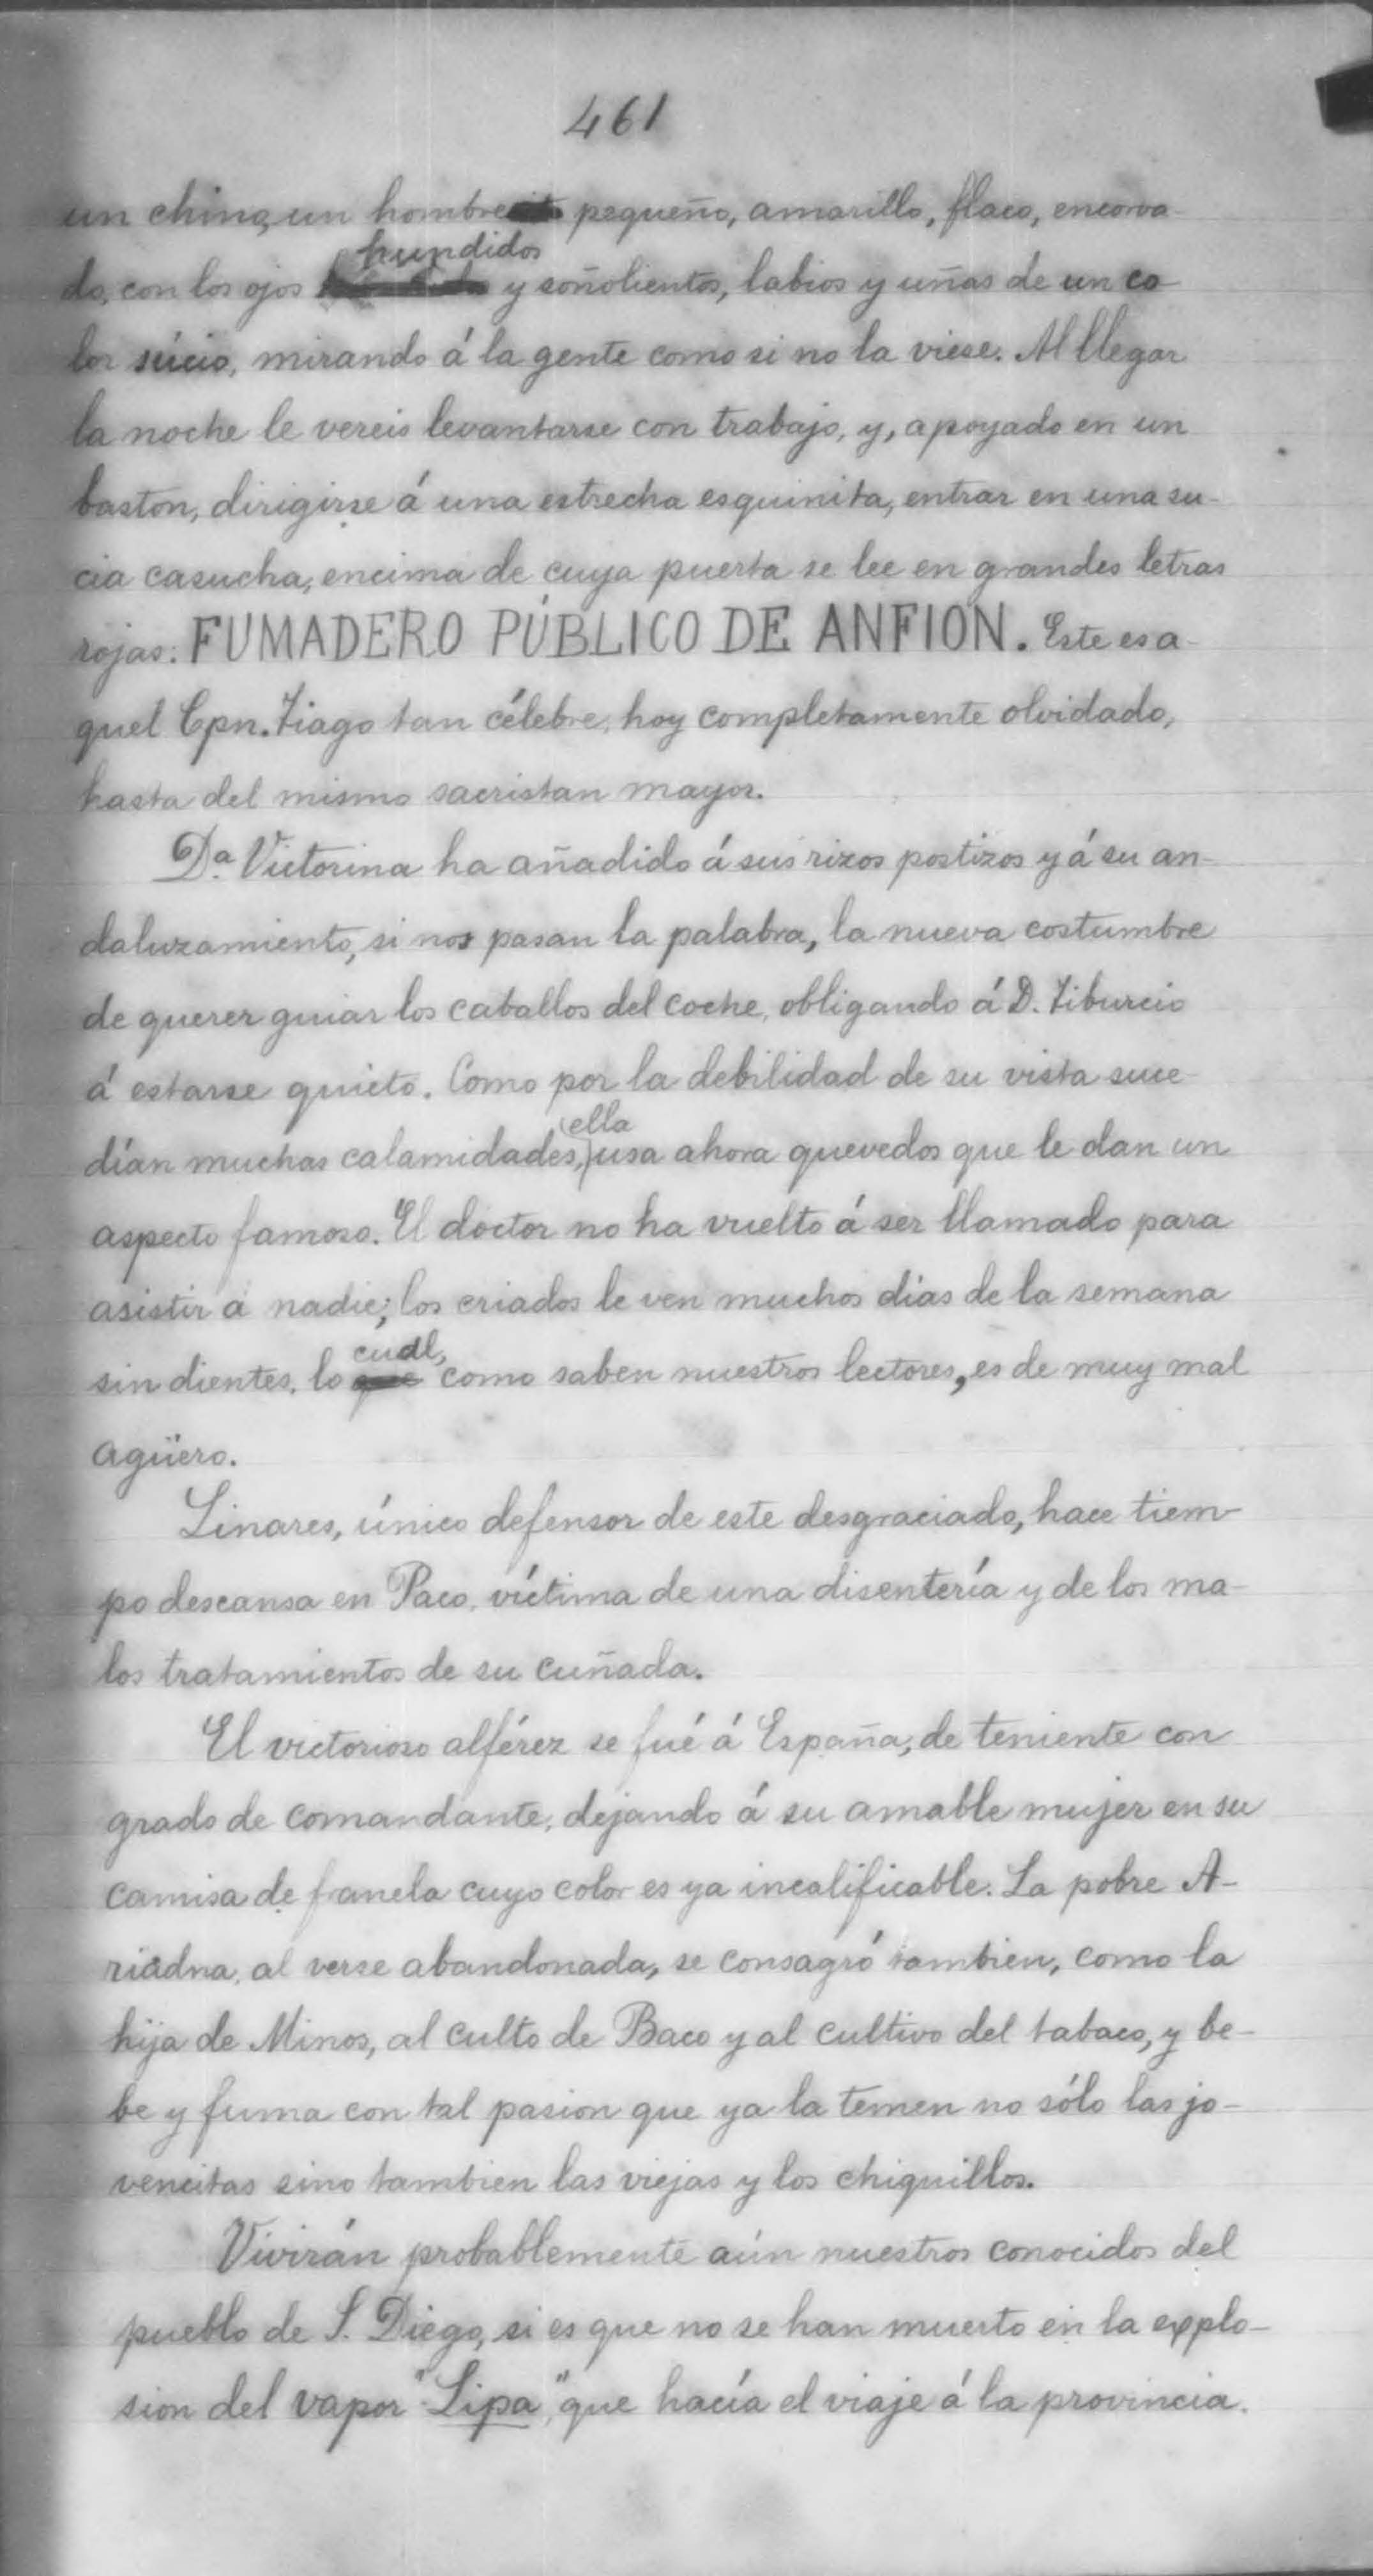 461
un chino, un hombre pequeño, amarillo, flaco, encorva-
do, con los ojos hundidos y soñolientos, labios y uñas de un co-
lor súcio, mirando á la gente como si no la viese. Al llegar
la noche le vereis levantarse con trabajo, y, apoyado en un
baston, dirigirse á una estrecha esquinita, entrar en una su-
cia casucha, encima de cuya puerta se lee en grandes letras
rojas: FUMADERO PÚBLICO DE ANFION. Este es a-
quel Cpn. Tiago tan célebre, hoy completamente olvidado,
hasta del mismo sacristan mayor.
Dª. Victorina ha añadido á sus rizos postizos y á su an-
daluzamiento, si nos pasan la palabra, la nueva costumbre
de querer guiar los caballos del coche, obligando á D. Tiburcio
á estarse quieto. Como por la debilidad de su vista suce-
dían muchas calamidades, ella usa ahora quevedos que le dan un
aspecto famoso. El doctor no ha vuelto á ser llamado para
asistir á nadie; los criados le ven muchos dias de la semana
sin dientes, lo que cual, como saben nuestros lectores, es de muy mal
agüero.
Linares, único defensor de este desgraciado, hace tiem-
po descansa en Paco, víctima de una disentería y de los ma-
los tratamientos de su cuñada.
El victorioso alférez se fué á España, de teniente con
grado de comandante, dejando á su amable mujer en su
camisa de franela cuyo color es ya incalificable. La pobre A-
riadna, al verse abandonada, se consagró tambien, como la
hija de Minos, al culto de Baco y al cultivo del tabaco, y be-
be y fuma con tal pasion que ya la temen no sólo las jo-
vencitas sino tambien las viejas y los chiquillos.
Vivirán probablemente aún nuestros conocidos del
pueblo de S. Diego, si es que no se han muerto en la explo-
sion del vapor "Lipa", que hacía el viaje á la provincia.